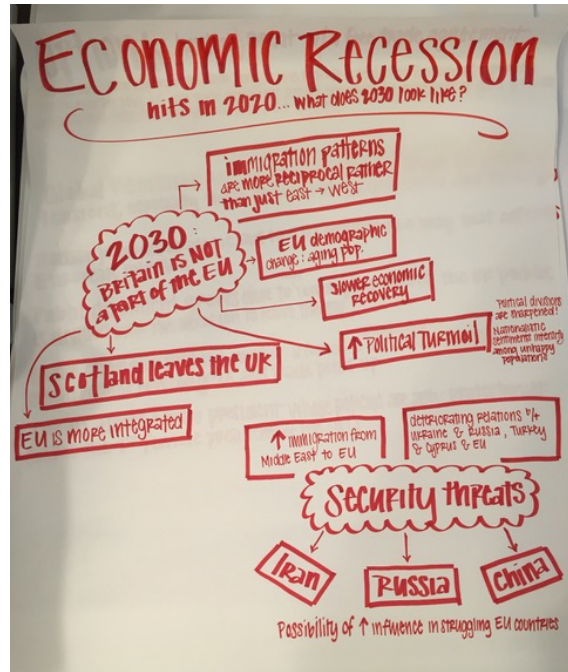 ECONOMIC RECESSION
hits in 2020... what does 2030 look like?
immigration patterns
are more reciprocal rather
than just east → west
2030:
BRITAIN IS NOT
a part of the EU
EU demographic
change: aging pop.
slower economic
recovery
↑ Political Turmoil
Political divisions
are sharpened!
Nationalistic
sentiments intensify
among unhappy
populations
Scotland leaves the UK
EU is more integrated
↑ immigration from
Middle East to EU
deteriorating relations b/t
Ukraine & Russia, Turkey
& Cyprus & EU
Security threats
Iran
Russia
China
Possibility of ↑ influence in struggling EU countries